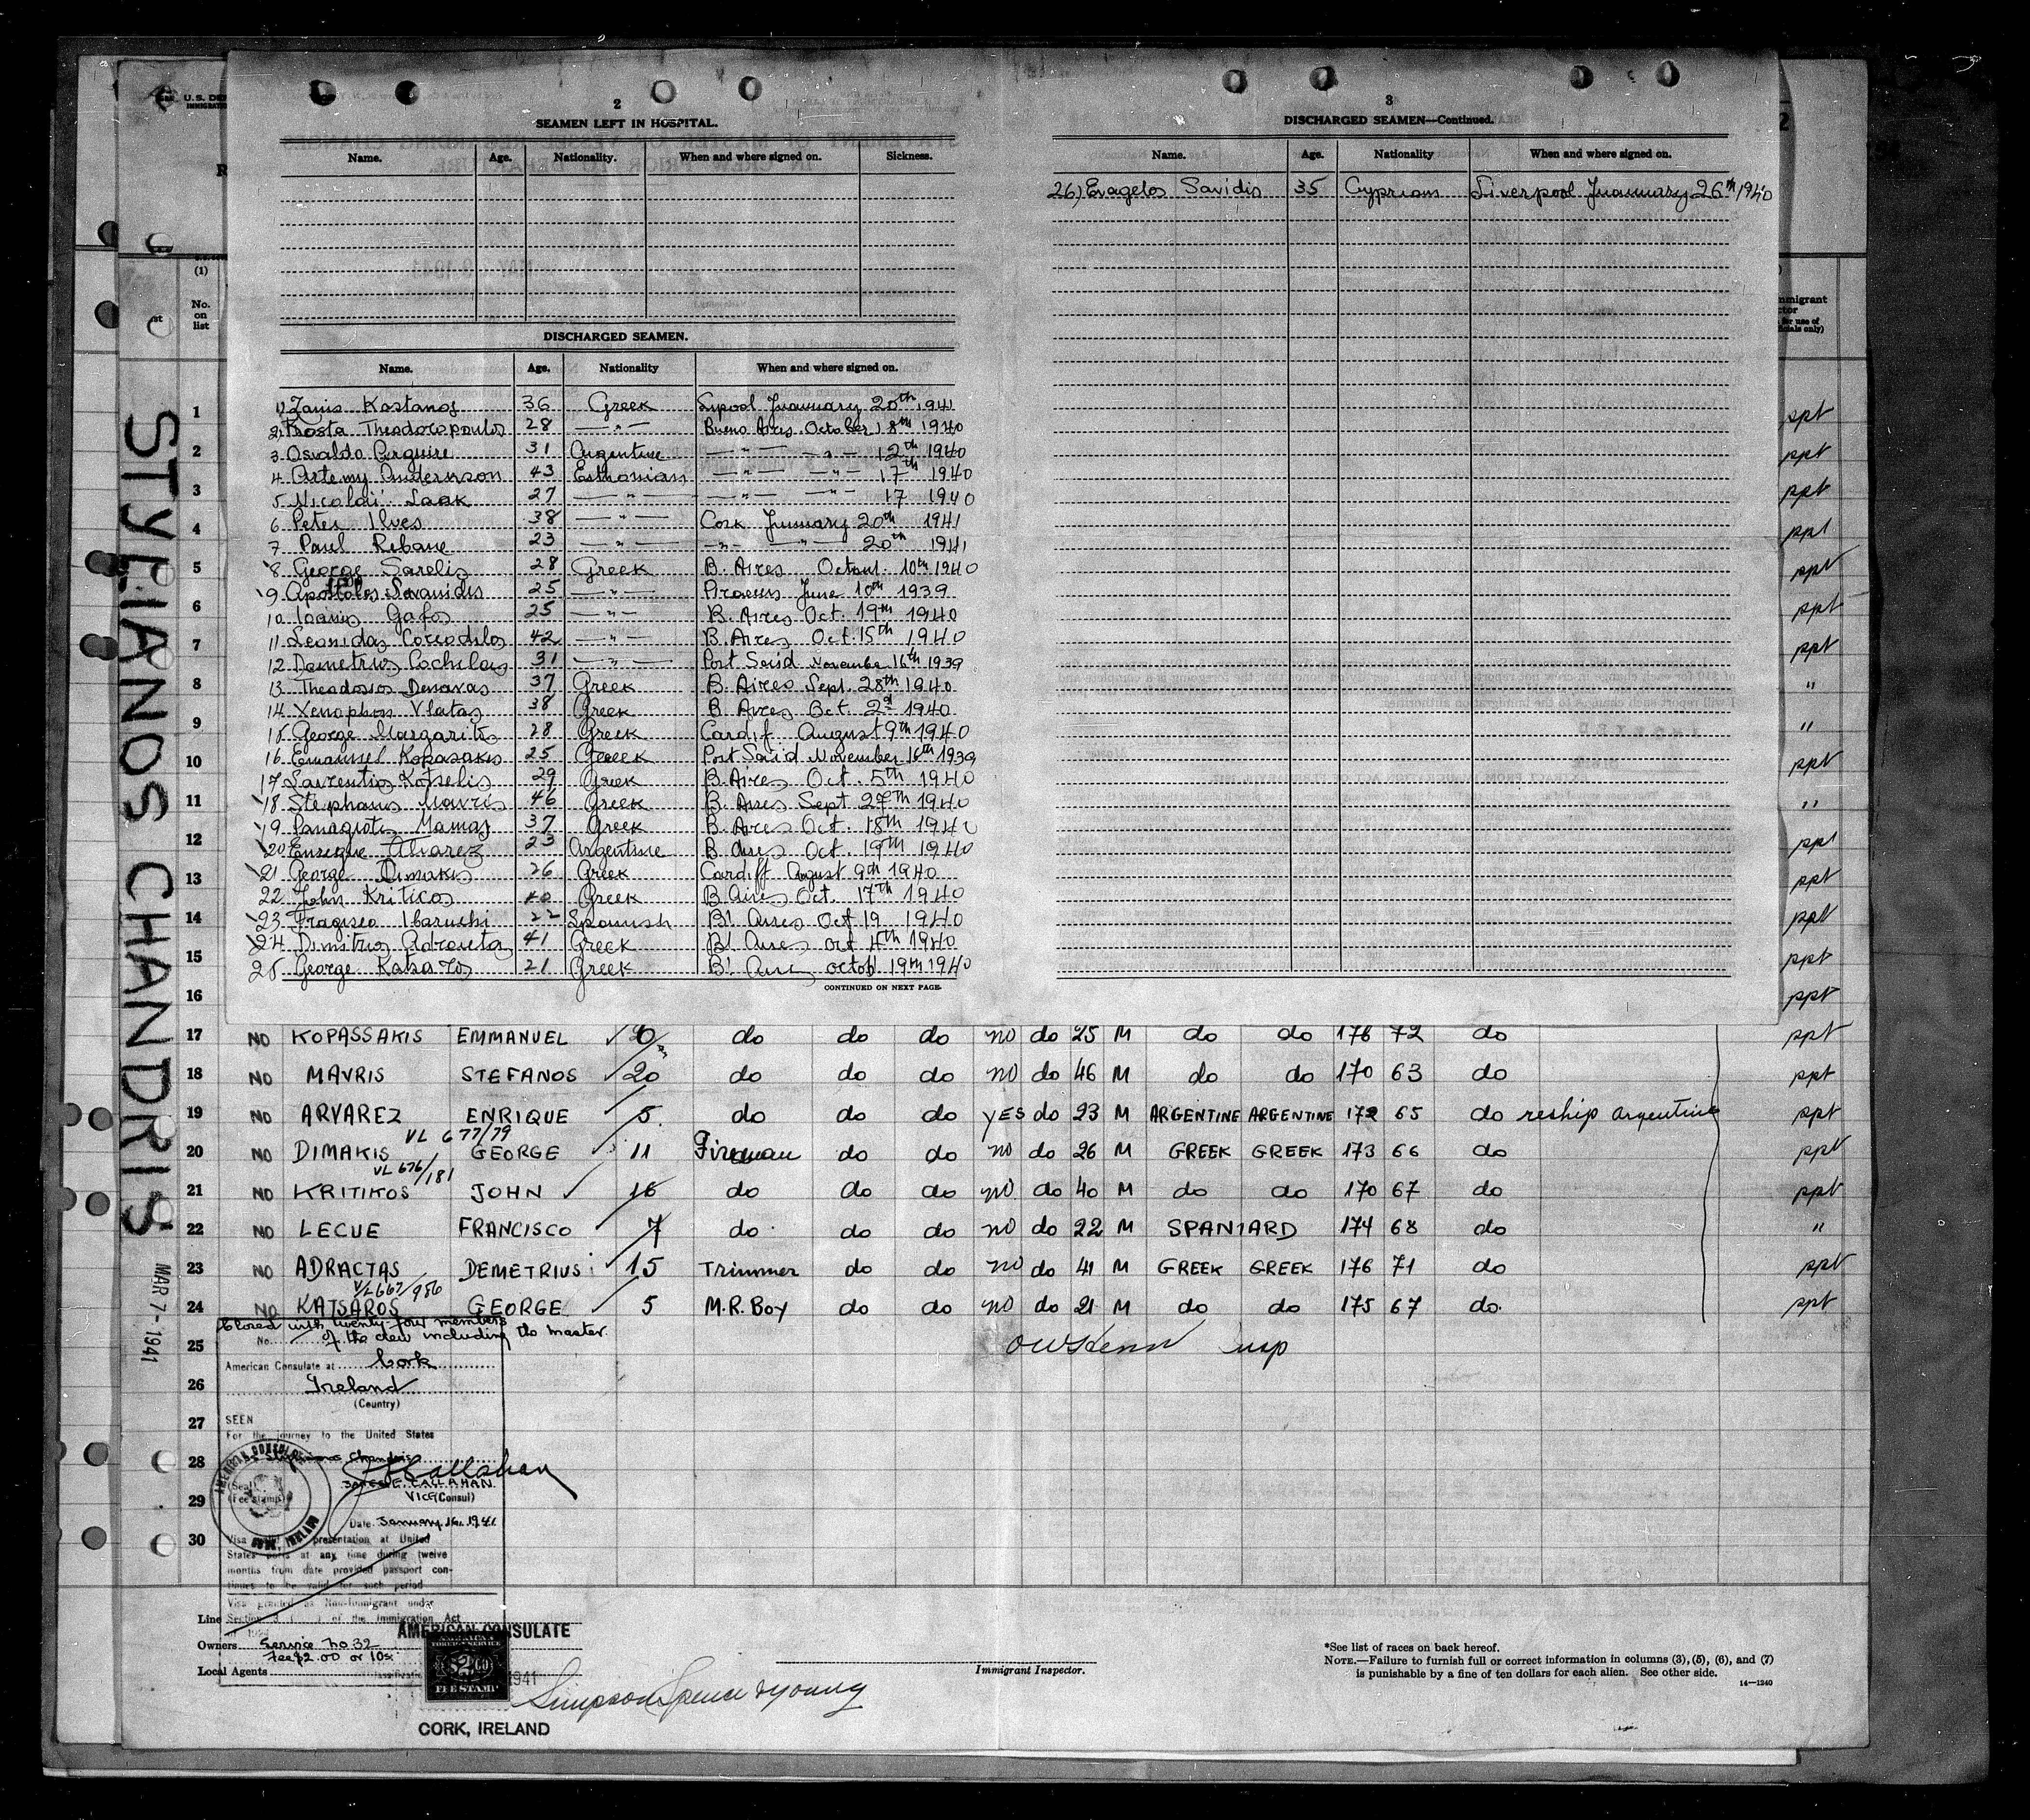 U.S. DE
IMMIGRATI
2
SEAMEN LEFT IN HOSPITAL.
Name. Age. Nationality. When and where signed on. Sickness.
DISCHARGED SEAMEN.
Name. Age. Nationality When and where signed on.
1) Zanis Kostanos 36 Greek Lpool Januuary 20th 1941
2) Kosta Theodoropoulos 28 —〃— Bueno Aires October 18th 1940
3 Osvaldo 31 Argentine —〃— —〃— 12th 1940
4 Artemy Anderson 43 Esthonian —〃— —〃— 17th 1940
5 Nicolai Laak 27 —〃— —〃— —〃— 17 1940
6 Peter Ilves 38 —〃— Cork January 20th 1941
7 Paul Rebane 23 —〃— —〃— —〃— 20th 1941
8 George Sarelis 28 Greek B. Aires Octout. 10th 1940
9 Apostolos Savanidis 25 —〃— Piraeus June 10th 1939
10 Ioanis Gafos 25 —〃— B. Aires Oct. 19th 1940
11 Leonidas Corcodilos 42 —〃— B. Aires Oct. 15th 1940
12 Demetrios Cochilas 31 —〃— Port Said Novembe 16th 1939
13 Theodosios Denavas 37 Greek B. Aires Sept. 28th 1940
14 Xenophon Vlatas 38 Greek B. Aires Oct. 2d 1940
15 George Margaritis 28 Greek Cardif August 9th 1940
16 Emanuel Kopasakis 25 Greek Port Said November 16th 1939
17 Lavrentis Kotselis 29 Greek B. Aires Oct. 5th 1940
18 Stephanos Mavris 46 Greek B. Aires Sept 27th 1940
19 Panagiotis Mamas 37 Greek B. Aires Oct. 18th 1940
20 Enrique Alvarez 23 Argentine B. Aires Oct. 19th 1940
21 George Dimakis 26 Greek Cardiff August 9th 1940
22 John Kriticos 40 Greek B Aires Oct. 17th 1940
23 Fragisco Ibaruchi 22 Spanish B! Aires Oct 19 1940
24 Dimitrios Adracta 41 Greek B! Aires oct 4th 1940
25 George Katsaros 21 Greek B! Aires octob. 19th 1940
CONTINUED ON NEXT PAGE.
3
DISCHARGED SEAMEN—Continued.
Name. Age. Nationality When and where signed on.
26) Evagelos Savidis 35 Cyprian Liverpool Januuary 26th 1940
(1)
No.
on
list
mmigrant
ctor
for use of
ficials only)
1 ppt
2 ppt
3 ppt
4 ppt
5 ppt
6 ppt
7 ppt
8 "
9 "
10 ppt
11 "
12 ppt
13 ppt
14 ppt
15 ppt
16 ppt
17 NO KOPASSAKIS EMMANUEL 6/m do do do no do 25 M do do 176 72 do ppt
18 NO MAVRIS STEFANOS 20 do do do no do 46 M do do 170 63 do ppt
19 NO ARVAREZ ENRIQUE 5 do do do yes do 23 M ARGENTINE ARGENTINE 172 65 do reship argentine ppt
VL 677/79
20 NO DIMAKIS GEORGE 11 Fireman do do no do 26 M GREEK GREEK 173 66 do ppt
VL 676/181
21 NO KRITIKOS JOHN 16 do do do no do 40 M do do 170 67 do ppt
22 NO LECUE FRANCISCO 7 do do do no do 22 M SPANIARD 174 68 do "
23 NO ADRACTAS DEMETRIUS 15 Trimmer do do no do 41 M GREEK GREEK 176 71 do ppt
V/L 667/986
24 No KATSAROS GEORGE 5 M.R. BOY do do no do 21 M do do 175 67 do. ppt
Closed with twenty-four members
of the crew including the master.
No.
25
26
27
28
29
30
insp
American Consulate at Cork
Ireland
(Country)
SEEN
For the journey to the United States
Chandris
AMERICAN CONSULATE
CORK, IRELAND
(Seal)
(Fee stamp)
Callahan
CALLAHAN
Vice (Consul)
Date January 16, 1941
Visa presentation at United
States ports at any time during twelve
months from date provided passport con-
tinues to be valid for such period
Visa granted as Non-Immigrant under
Section 3 ( ) of the Immigration Act
Line
Owners
Local Agents
Service No 32
Fee $2.00 or 10s
AMERICAN CONSULATE
FOREIGN SERVICE
$2.00
FEE STAMP
1941
CORK, IRELAND
Simpson Spence & Young
Immigrant Inspector.
*See list of races on back hereof.
NOTE.—Failure to furnish full or correct information in columns (3), (5), (6), and (7)
is punishable by a fine of ten dollars for each alien. See other side.
14—1240
STYLIANOS CHANDRIS
MAR 7 - 1941